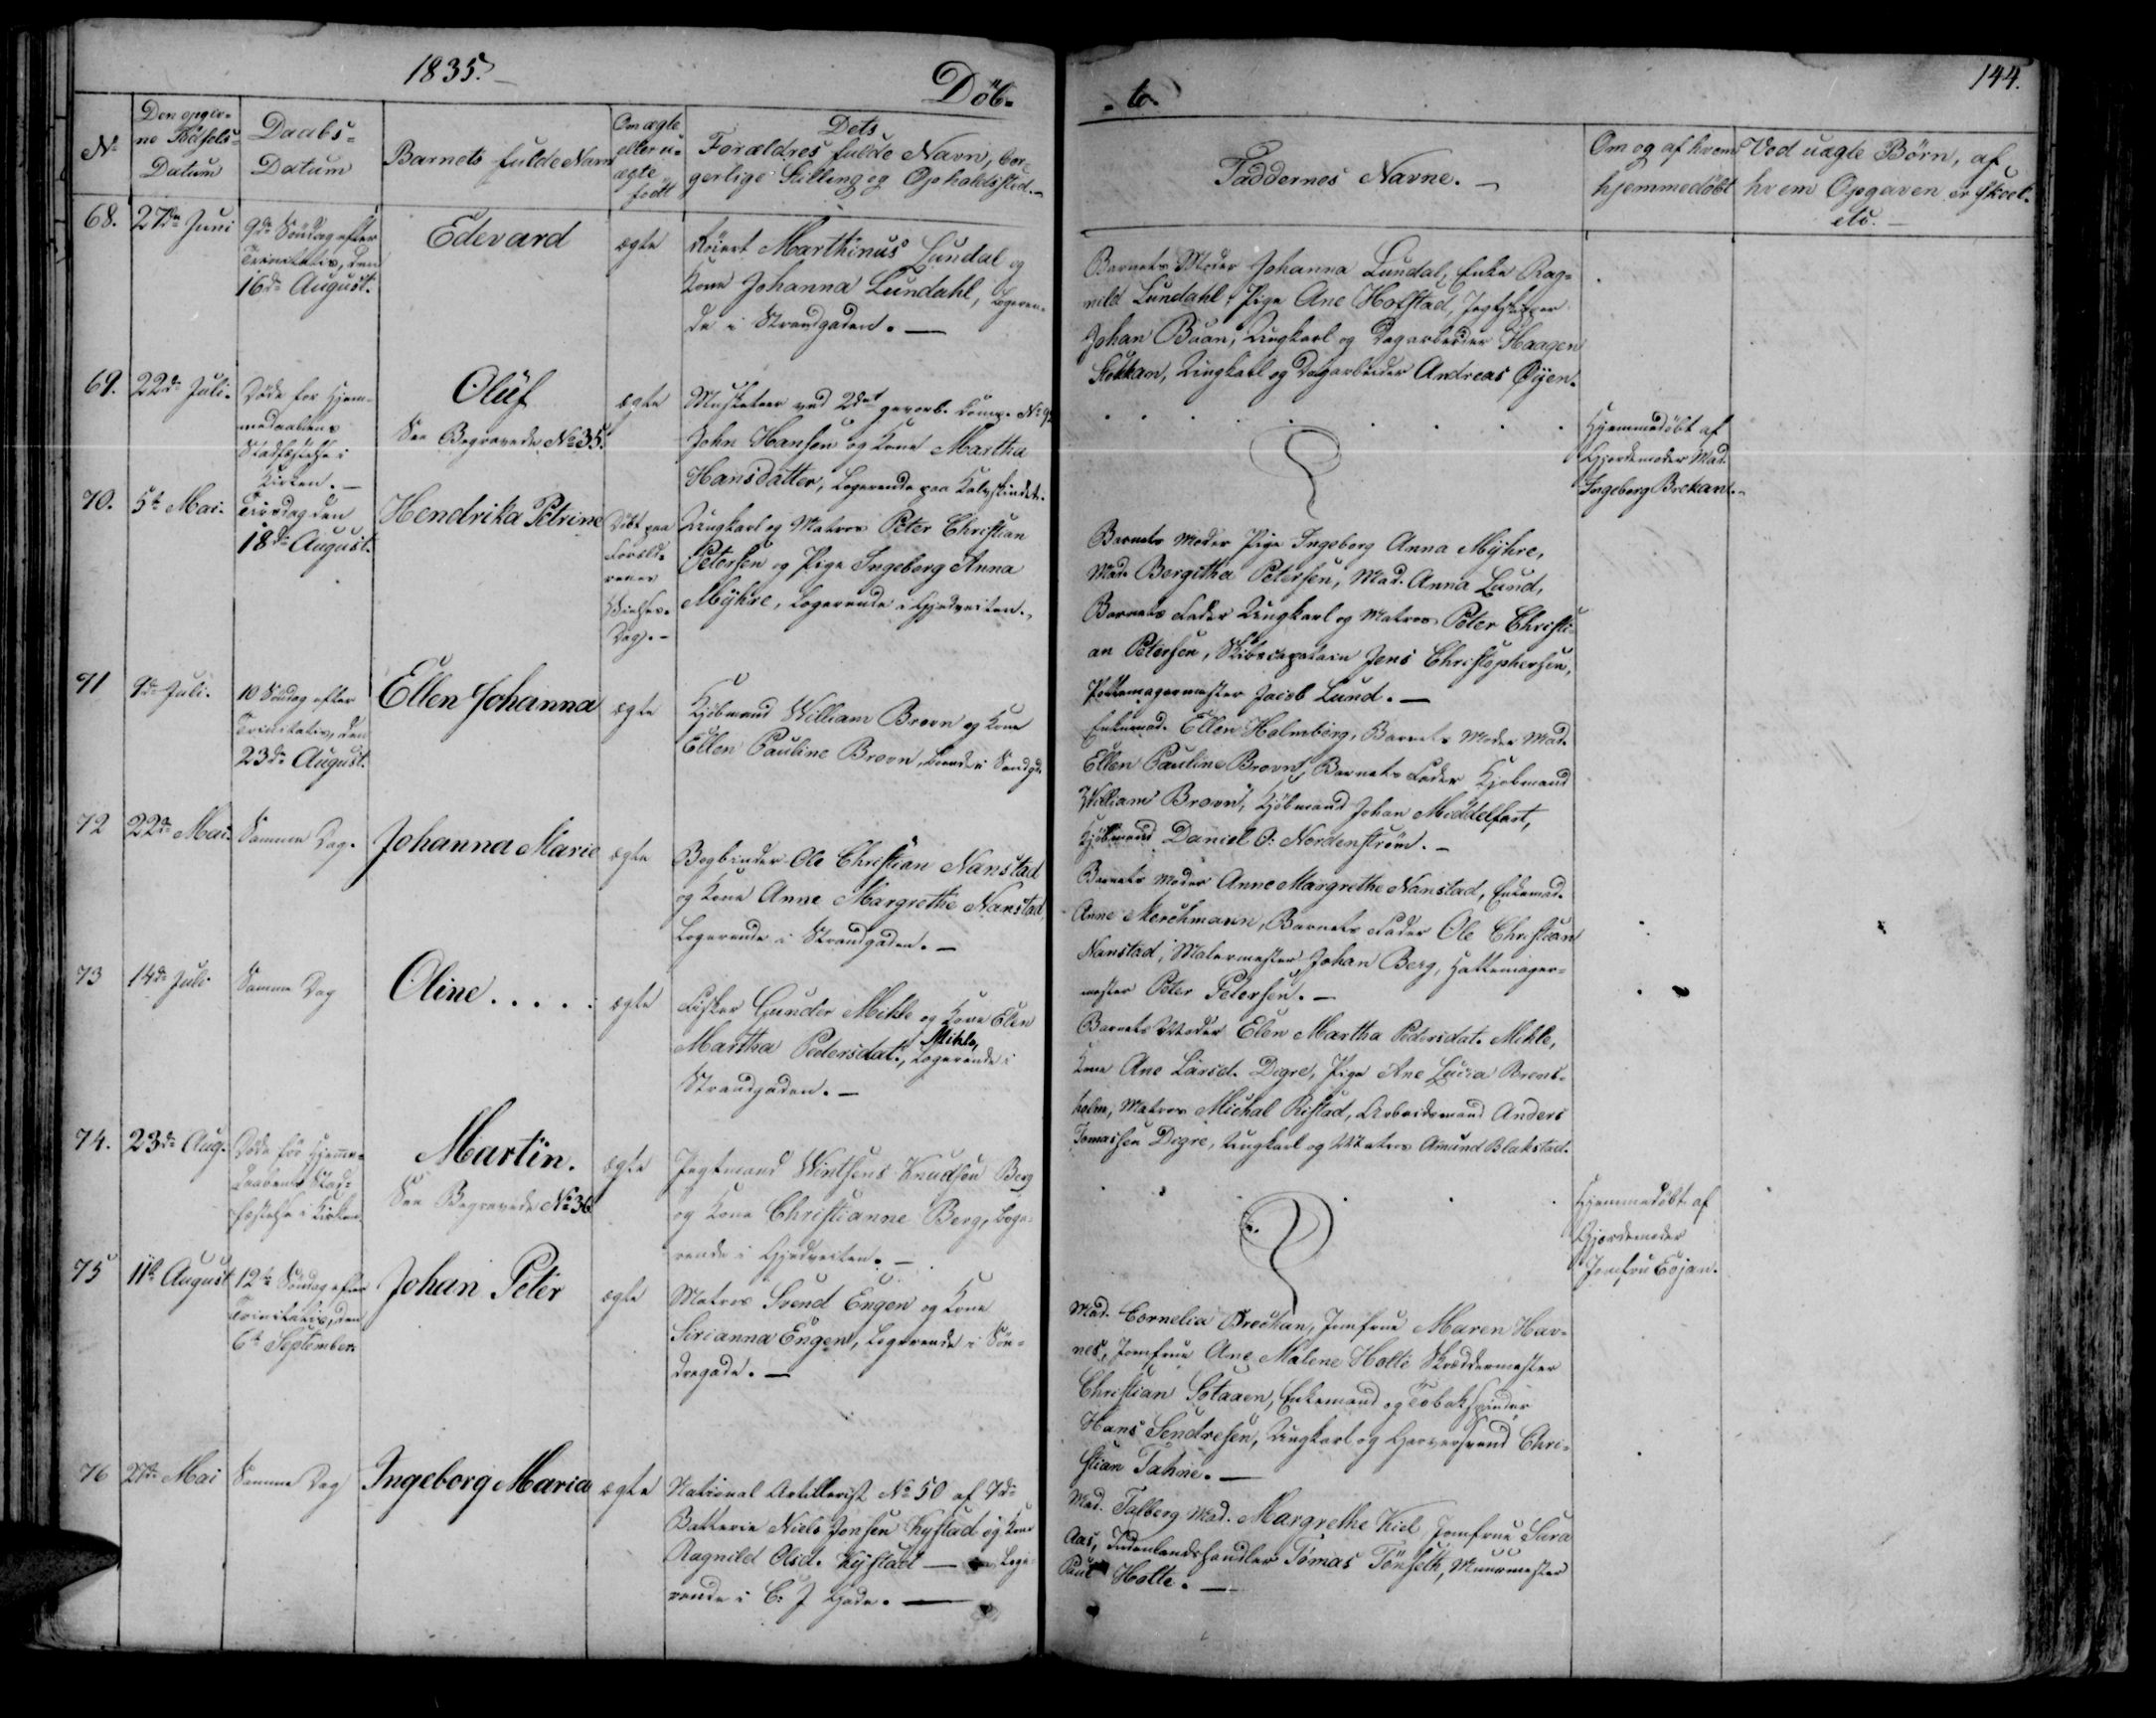 1835.
Döb-
-te-
144.
No
Den opgiv-
ne Födsels-
Datum
Daabs-
Datum
Barnets fulde Navn
Om ægte
eller u-
ægte
födt
Dets
Forældres fulde Navn, bor-
gerlige Stilling og Opholdssted.
Faddernes Navne.
Om og af hvem
hjemmedöbt
Ved uægte Börn, af
hvem Opgaven er skeet.
etc.
68.
27de Juni
9de Söndag efter
Trinitatis, den
16de August.
Edevard
ægte
Marthinus Lundal og
Kone Johanna Lundahl, Logeren-
de i Strandgaden.
Barnets Moder Johanna Lundal, Enke Rag-
nild Lundahl, Pige Ane Hofstad, Jægtskipper
Johan Buan, Ungkarl og Dagarbeider Haagen
Stokkan, Ungkarl og Dagarbeider Andreas Öyen.
69.
22de Juli.
Döde for Hjem-
medaabens
Stadfæstelse i
Kirken.
Oluf
See Begravede No 35.
ægte
Musketeer ved 2det gevorb. Comp. No 92
John Hansen og Kone Martha
Hansdatter, Logerende paa Kalvskindet.
Hjemmedöbt af
Gjordemoder Mad.
Ingeborg Brekan.
70.
5te Mai.
Tirsdag den
18de August.
Hendrika Petrine
Döbt paa
Foræld-
renes
Vielses-
Dag.
Ungkarl og Matros Peter Christian
Petersen og Pige Ingeborg Anna
Myhre, Logerende i Gjedveiten.
Barnets Moder Pige Ingeborg Anna Myhre,
Mad. Bergitha Petersen, Mad. Anna Lund,
Barnets Fader Ungkarl og Matros Peter Christi-
an Petersen, Skibscapatain Jens Christophersen,
Pottemagermester Jacob Lund.
71
9de Juli.
10 Söndag efter
Trinitatis, den
23de August.
Ellen Johanna
ægte
Kjöbmand William Brovn og Kone
Ellen Pauline Brovn, boende i Sandgd.
Enkemad. Ellen Holmberg, Barnets Moder Mad.
Ellen Pauline Brovn, Barnets Fader Kjöbmand
William Brovn, Kjöbmand Johan Middelfart,
Kjöbmand Daniel O: Nordenström.
72
22de Mai.
Samme Dag.
Johanna Marie
ægte
Bogbinder Ole Christian Nanstad
og Kone Anne Margrethe Nanstad,
Logerende i Strandgaden.
Barnets Moder Anne Margrethe Nanstad, Enkemad.
Anne Merchmann, Barnets Fader Ole Christian
Nanstad, Malermester Johan Berg, Hattemager-
mester Peter Petersen.
73
14de Juli
Samme Dag
Oline.....
ægte
Fisker Gunder Mikle og Kone Elen
Martha Pedersdat. Mikle, Logerende i
Strandgaden.
Barnets Moder Elen Martha Pedersdat. Mikle,
Kone Ane Larsd. Digre, Pige Ane Lucia Brens-
holm, Matros Michal Ristad, Arbeidsmand Anders
Tomassen Digre, Ungkarl og Matros Amund Blakstad.
74.
23de Aug.
Döde för Hjemme-
Daabens Stad-
fæstelse i Kirken
Martin.
See Begravede No 36
ægte
Jegtmand Wintsens Knudsen Berg
og Kone Christianne Berg, Loge-
rende i Gjedveiten.
Hjemmedöbt af
Gjordemoder
Jomfru Eojan.
75
11te August
12te Söndag efter
Trinitatis, den
6te September.
Johan Peter
ægte
Matros Svend Engen og Kone
Sirianna Engen, Logerende i Sön-
dregade.
Mad. Cornelia Brechan, Jomfrue Maren Hav-
nes, Jomfrue Ane Malene Holte Skræddermester
Christian Sotaaen, Enkemand og Tobakspinder
Hans Sendresen, Ungkarl og Garversvend Chri-
stian Tahne.
76
27de Mai
Samme Dag
Ingeborg Maria
ægte
National Artillerist No 50 af 7de
Batterie Niels Jonsen Kystad og Kone
Ragnild Olsd. Kystad Loge-
rende i C: J Gade.
Mad. Talberg Mad. Margrethe Kiel, Jomfrue Sara
Aas, Indenlandshandler Tomas Tönseth, Muurmester
Paul Holte.